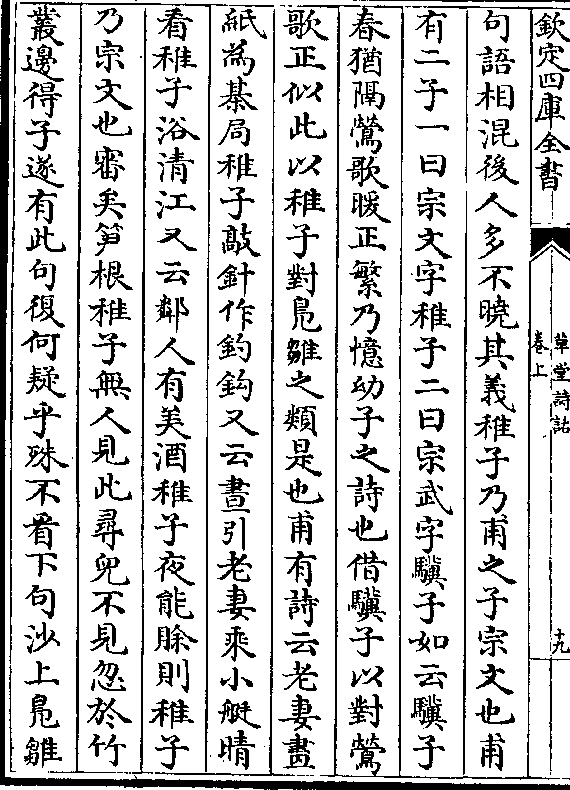 欽定四庫全書
草堂詩話
卷上
十九
句語相混後人多不曉其義稚子乃甫之子宗文也甫
有二子一曰宗文字稚子二曰宗武字驥子如云驥子
春猶隔鶯歌暖正繁乃憶幼子之詩也借驥子以對鶯
歌正似此以稚子對鳬雛之類是也甫有詩云老妻畫
紙為棊局稚子敲針作釣鈎又云晝引老妻乘小艇晴
看稚子浴清江又云鄰人有美酒稚子夜能賒則稚子
乃宗文也審矣笋根稚子無人見此尋兒不見忽於竹
叢邊得子遂有此句復何疑乎殊不看下句沙上鳬雛